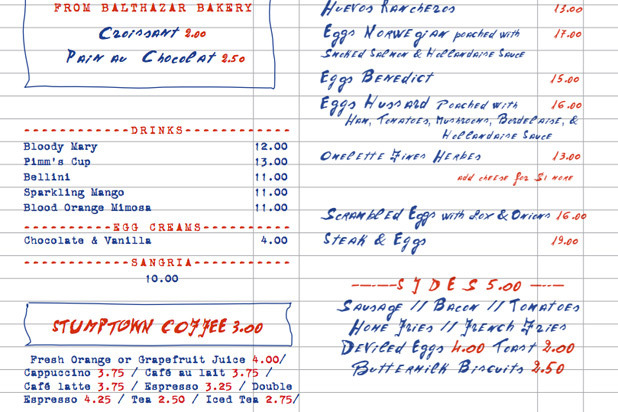 FROM BALTHAZAR BAKERY
Croissant 2.00
Pain au Chocolat 2.50
DRINKS
Bloody Mary 12.00
Pimm's Cup 13.00
Bellini 11.00
Sparkling Mango 11.00
Blood Orange Mimosa 11.00
EGG CREAMS
Chocolate & Vanilla 4.00
SANGRIA
10.00
STUMPTOWN COFFEE 3.00
Fresh Orange or Grapefruit Juice 4.00/
Cappuccino 3.75 / Café au lait 3.75 /
Café latte 3.75 / Espresso 3.25 / Double
Espresso 4.25 / Tea 2.50 / Iced Tea 2.75/
Huevos Rancheros 13.00
Eggs Norwegian poached with 17.00
Smoked Salmon & Hollandaise Sauce
Eggs Benedict 15.00
Eggs Hussard Poached with 16.00
Ham, Tomatoes, Mushrooms, Bordelaise, &
Hollandaise Sauce
Omelette Fines Herbes 13.00
add cheese for $1 more
Scrambled Eggs with Lox & Onions 16.00
Steak & Eggs 19.00
SIDES 5.00
Sausage // Bacon // Tomatoes
Home Fries // French Fries
Deviled Eggs 4.00 Toast 2.00
Buttermilk Biscuits 2.50